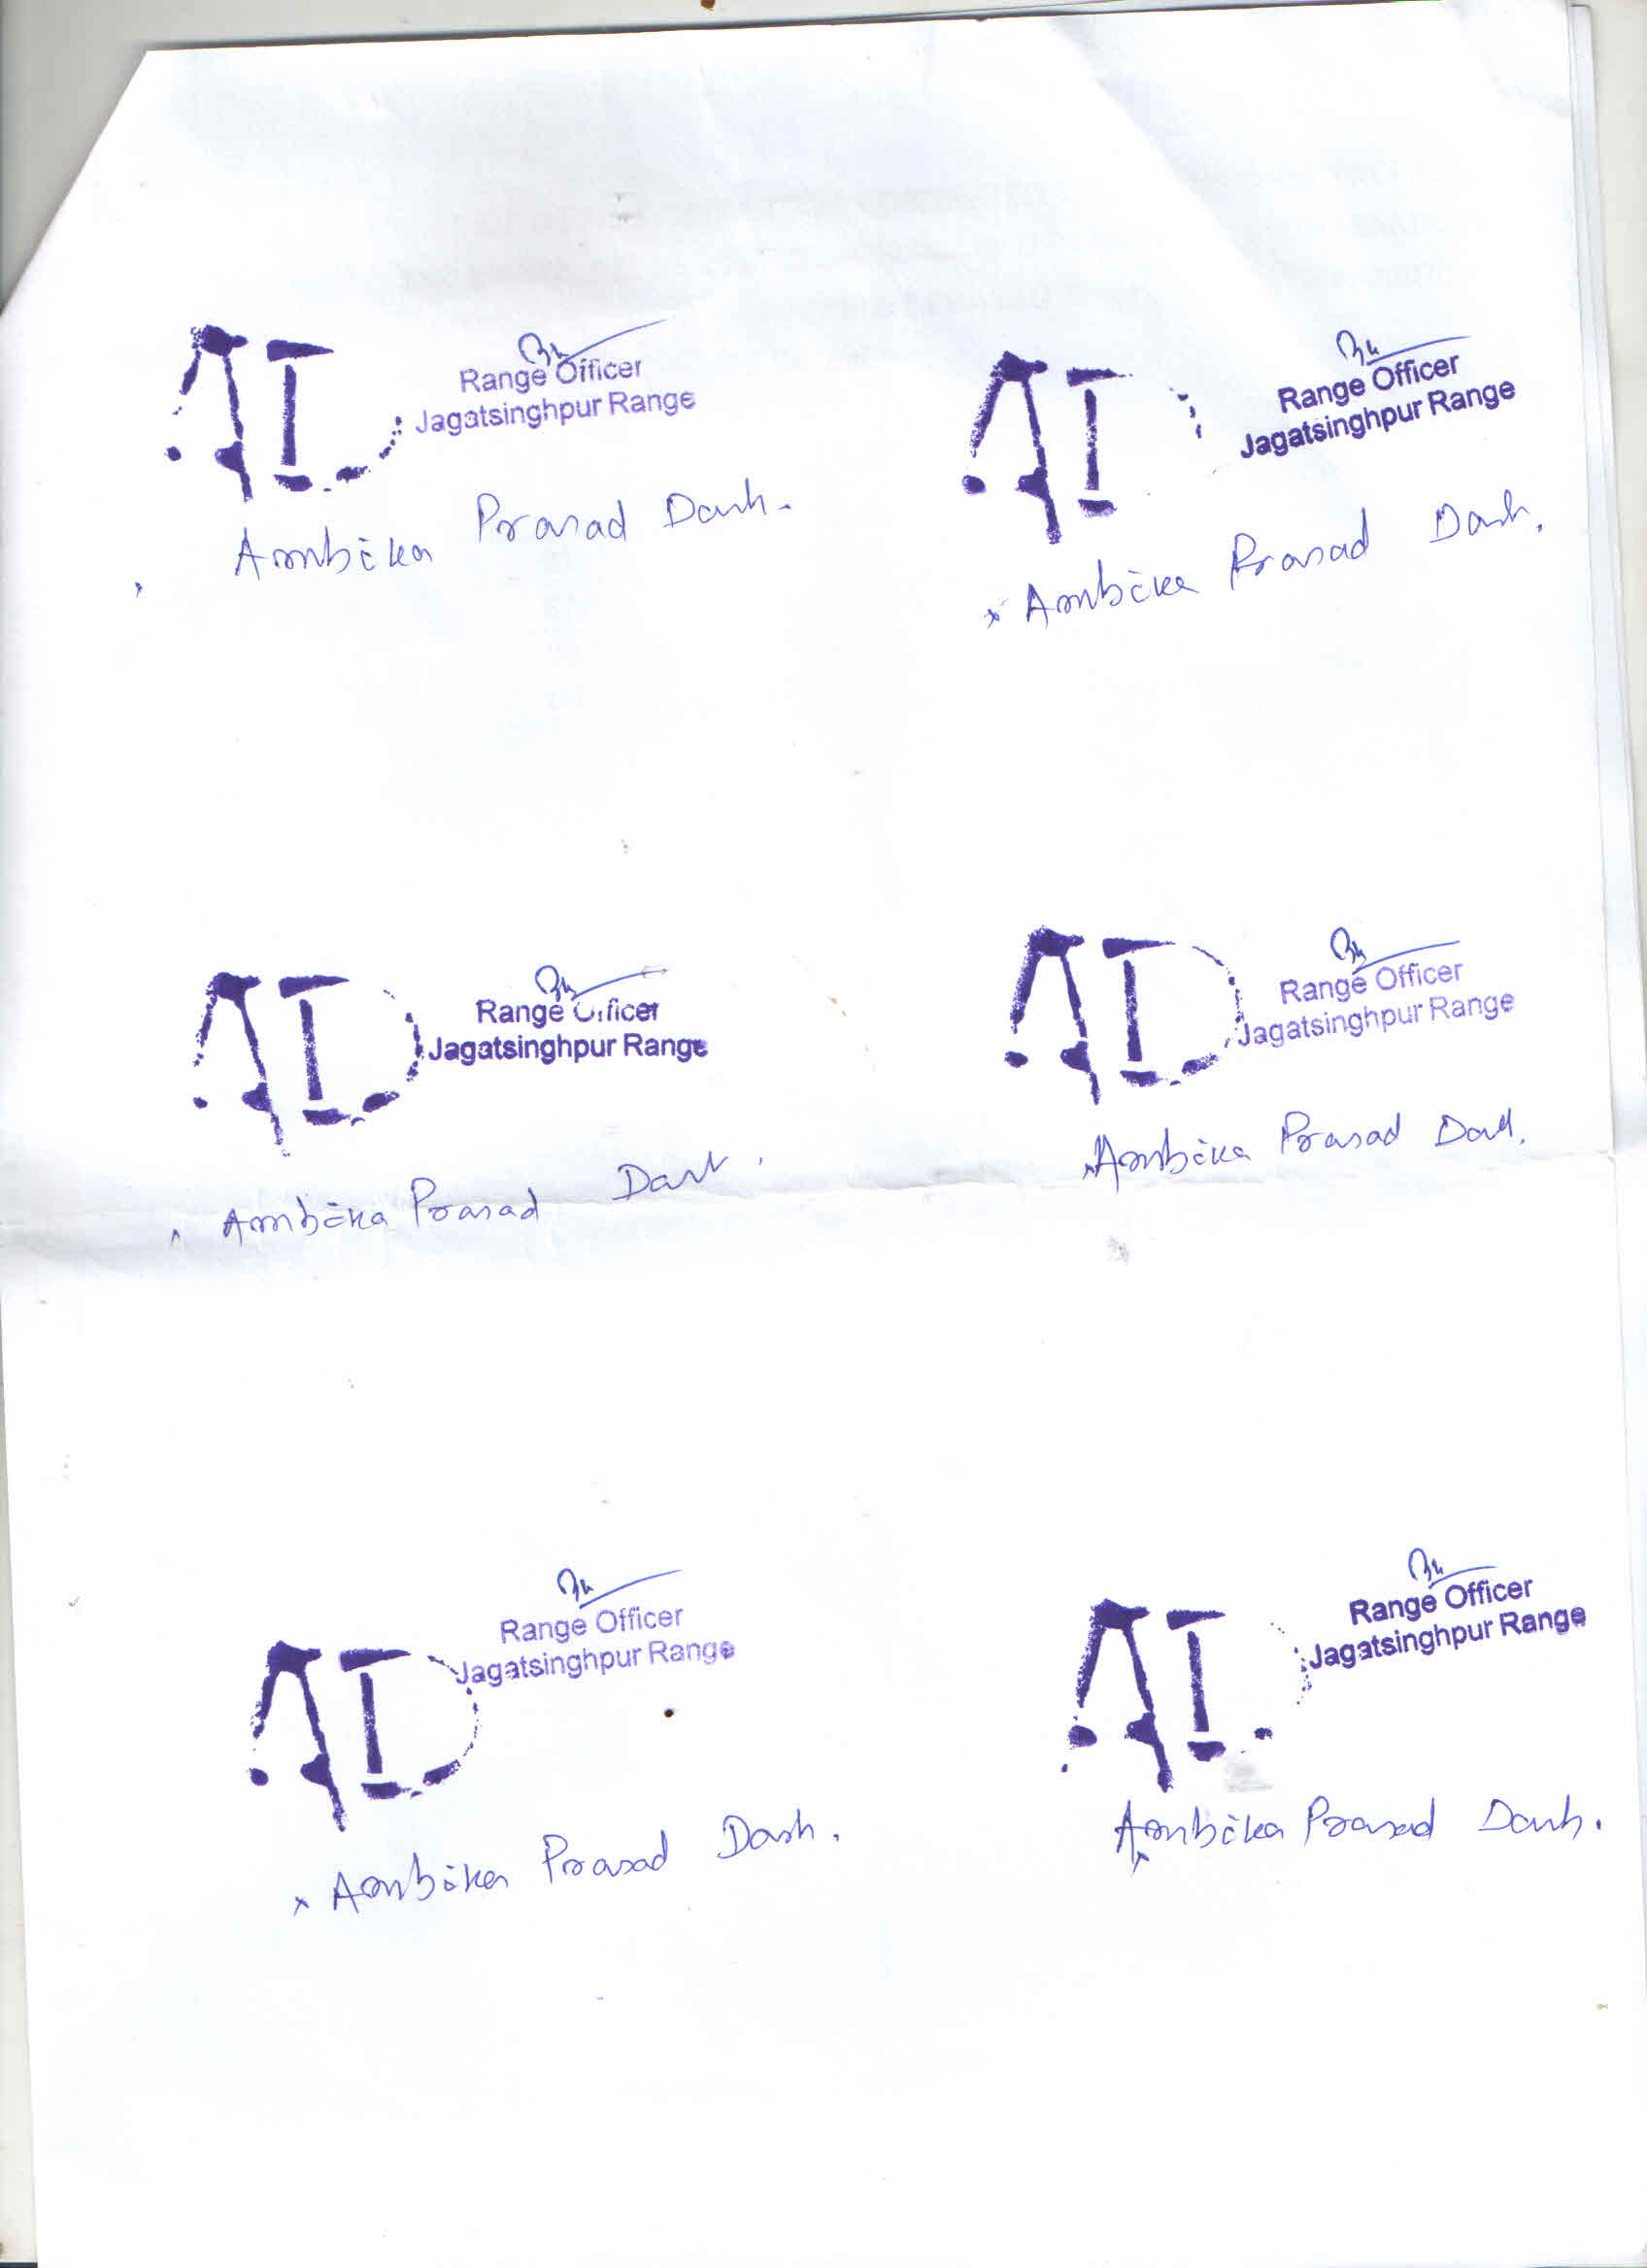 AD
Range Officer
Jagatsinghpur Range
Ambika Prasad Dash.
AD
Range Officer
Jagatsinghpur Range
x Ambika Prasad Dash.
AD
Range Officer
Jagatsinghpur Range
Ambika Prasad Dash.
AD
Range Officer
Jagatsinghpur Range
x Ambika Prasad Dash.
AD
Range Officer
Jagatsinghpur Range
x Ambika Prasad Dash.
AD
Range Officer
Jagatsinghpur Range
x Ambika Prasad Dash.